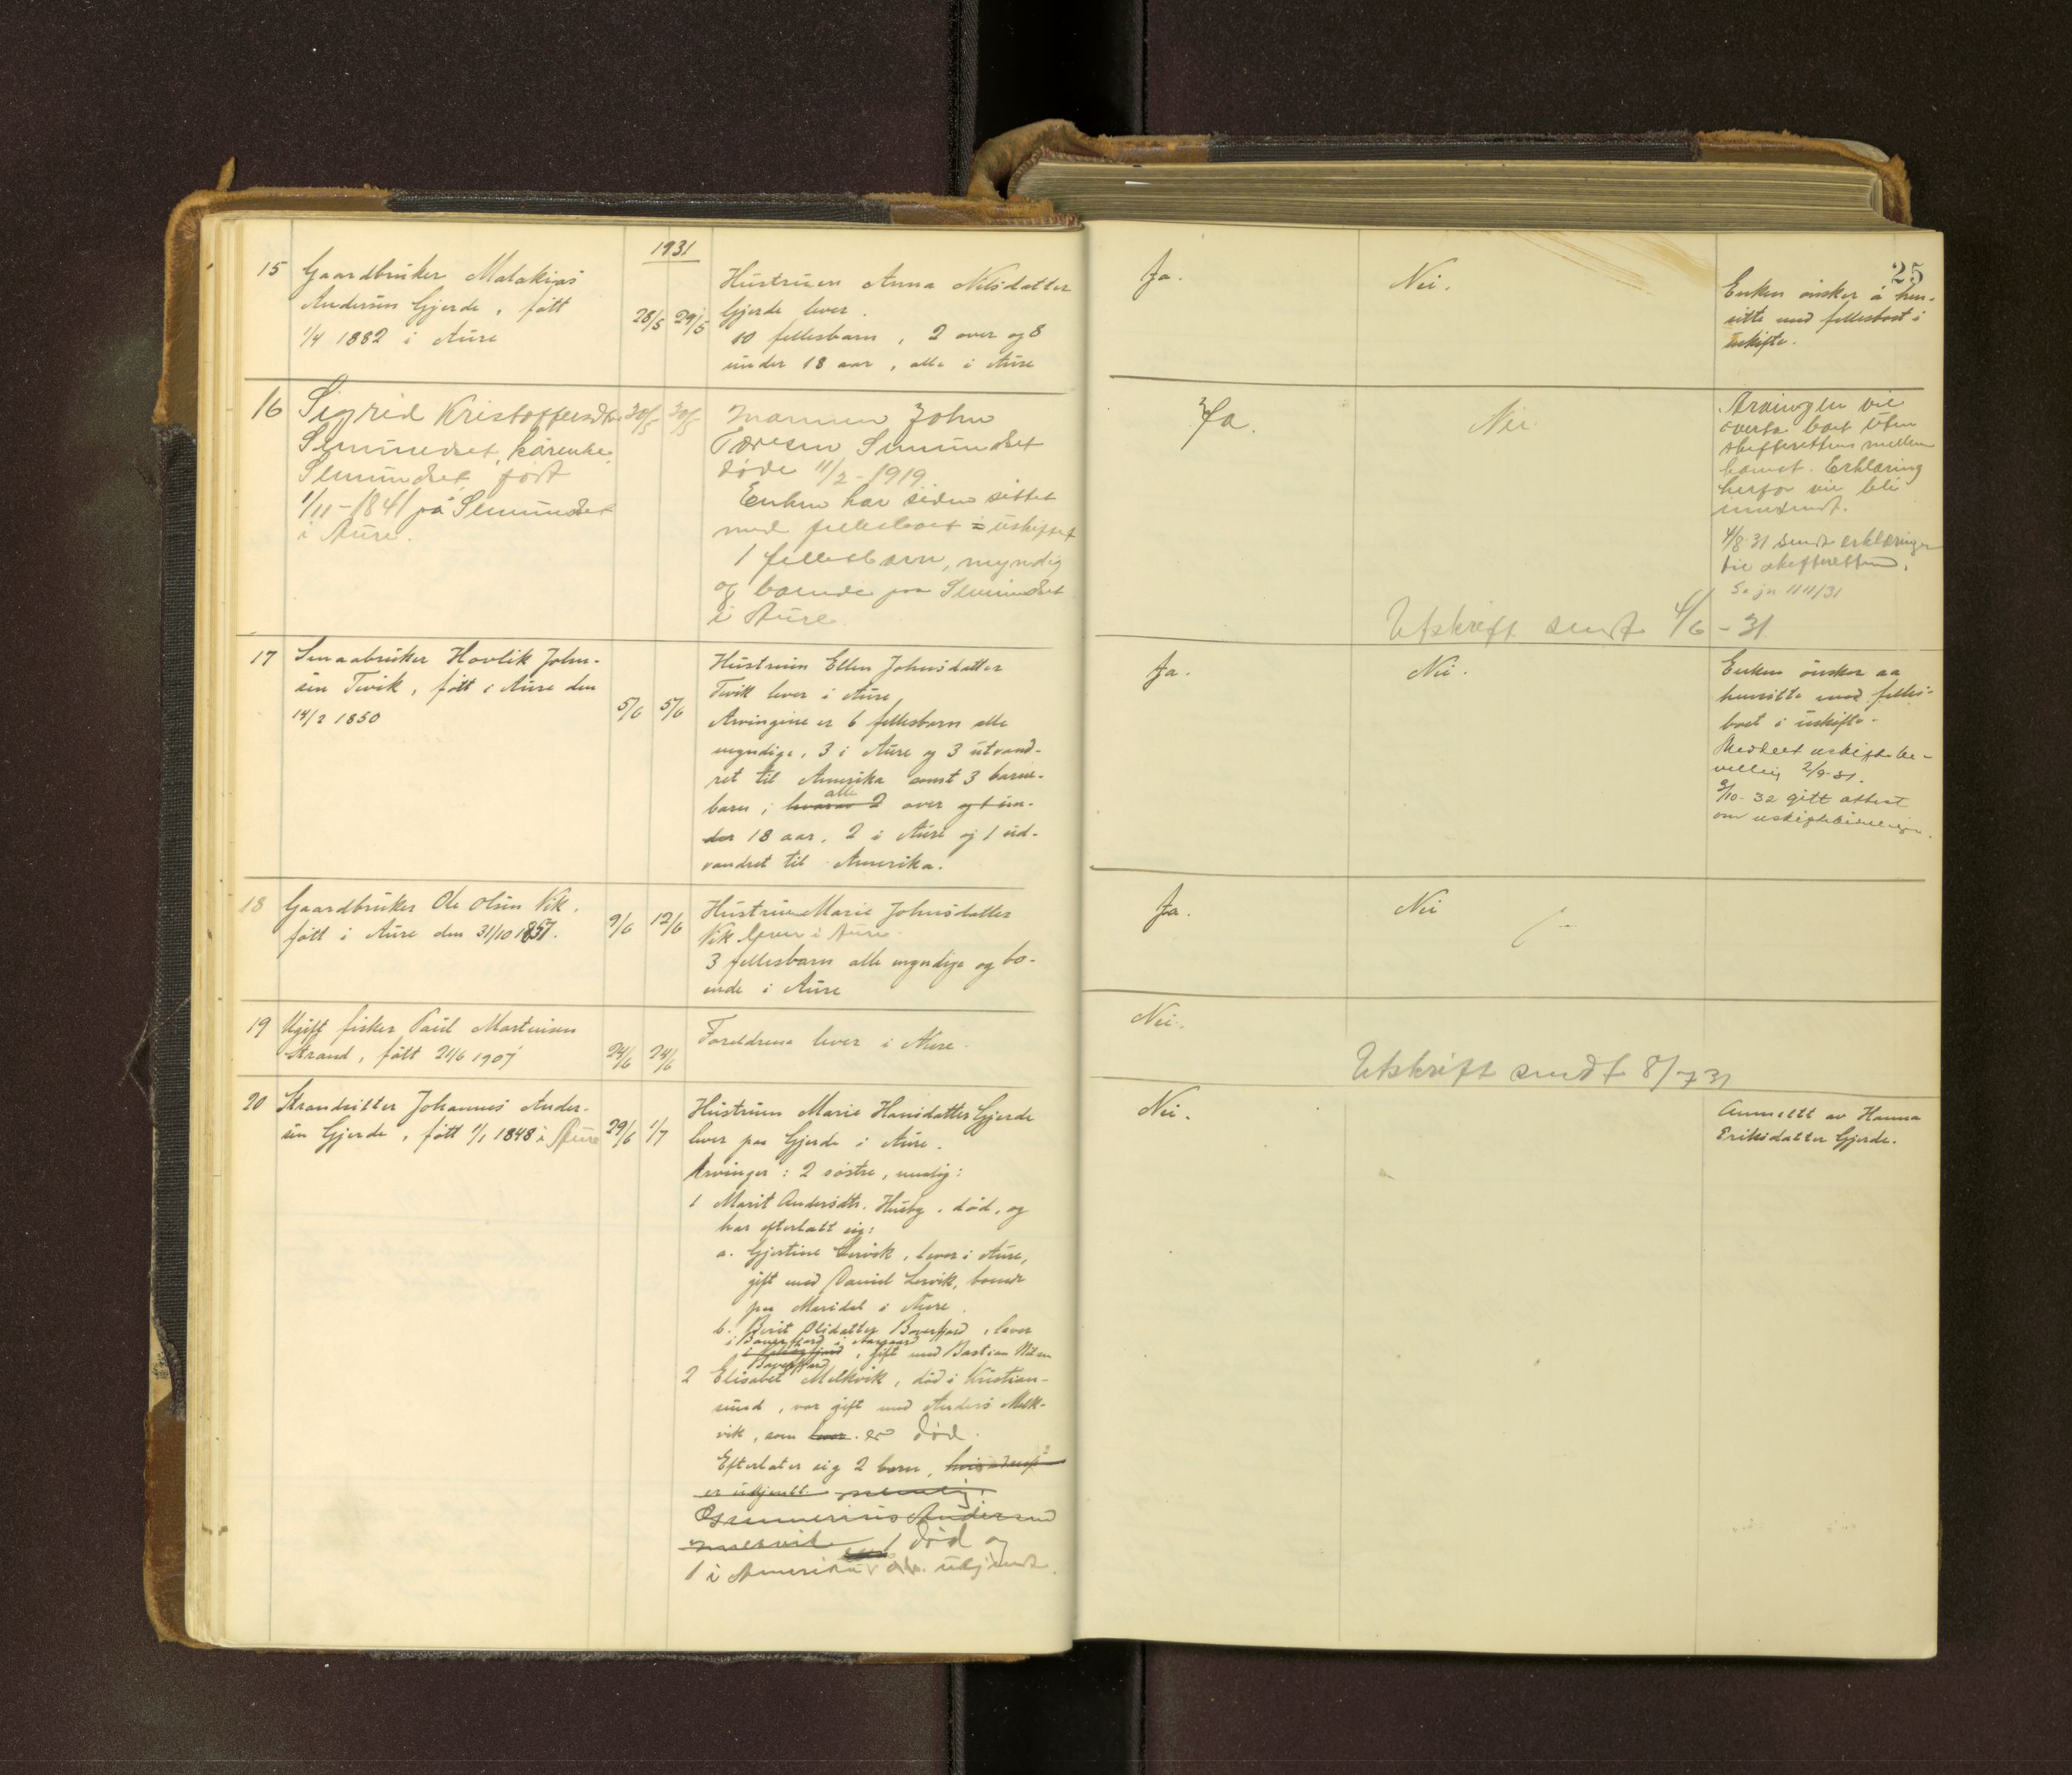 1931
25
15 Gaardbruker Malakias
Andersen Gjerde, født
1/4 1882 i Aure
28/5 29/5
Hustruen Anna Nilsdatter
Gjerde lever.
10 fellesbarn, 2 over og 8
under 18 aar, alle i Aure
Ja.
Nei.
Enken ønsker å hen-
sitte med fellesboet i
uskifte.
16 Sigrid Kristoffersdtr
Semundset, kårenke
Semundset, født
1/11-1841 på Semundset
i Aure.
30/5 30/5
Mannen John
Semundset
døde 11/2-1919
Enken har siden sittet
med fellesboet i uskiftet
1 fellesbarn, myndig
og boende paa Semundset
i Aure.
Ja.
Nei
Arvingen vil
overta boet uten
skifterettens mellem
komst. Erklæring
herfor vil bli
innsendt.
4/8-31 sendt erklæringen
til skifteretten.
Se jn 1111/31
Utskrift sendt 4/6-31
17 Smaabruker Hovlik John-
sen Tevik, født i Aure den
14/2 1850
5/6 5/6
Hustruen Ellen Johnsdatter
Tevik lever i Aure
Arvingene er 6 fellesbarn alle
myndige, 3 i Aure og 3 utvand-
ret til Amerika samt 3 barne-
barn, hvorav alle 2 over og 1 un-
der 18 aar, 2 i Aure og 1 ud-
vandret til Amerika.
Ja.
Nei.
Enken ønsker aa
hensitte med felles-
boet i uskifte.
Meddelt uskiftebe-
villing 2/9-31.
3/10-32 gitt attest
om uskiftebevilling.
18 Gaardbruker Ole Olsen Vik,
født i Aure den 31/10 1857.
9/6 12/6
Hustruen Marie Johnsdatter
Vik lever i Aure.
3 fellesbarn alle myndige og bo-
ende i Aure
Ja.
Nei
19 Ugift fisker Paul Martinsen
Strand, født 21/6 1907
24/6 24/6
Foreldrene lever i Aure.
Nei.
Utskrift sendt 8/7 31
20 Strandsitter Johannes Ander-
sen Gjerde, født 1/1 1848 i Aure
29/6 1/7
Hustruen Marie Hansdatter Gjerde
lever paa Gjerde i Aure.
Arvinger: 2 søstre, nemlig:
1 Marit Andersdtr. Husby, død, og
har efterlatt sig:
a. Gjertine Lervik, lever i Aure,
gift med Daniel Lervik, boende
paa Meridal i Aure.
b. Berit Olsdatter Bøverfjord, lever
i Bøverfjord i
gift med Bastian Nilsen
Bøverfjord
2 Elisabet Melkvik, død i Kristian-
sund, var gift med Anders Melk-
vik, som lever er død.
Efterlater sig 2 barn,
er ukjendt. nemlig:
Andersen
1 død og
1 i Amerika, adr. ukjendt.
Nei.
Anmeldt av Hanna
Eriksdatter Gjerde.